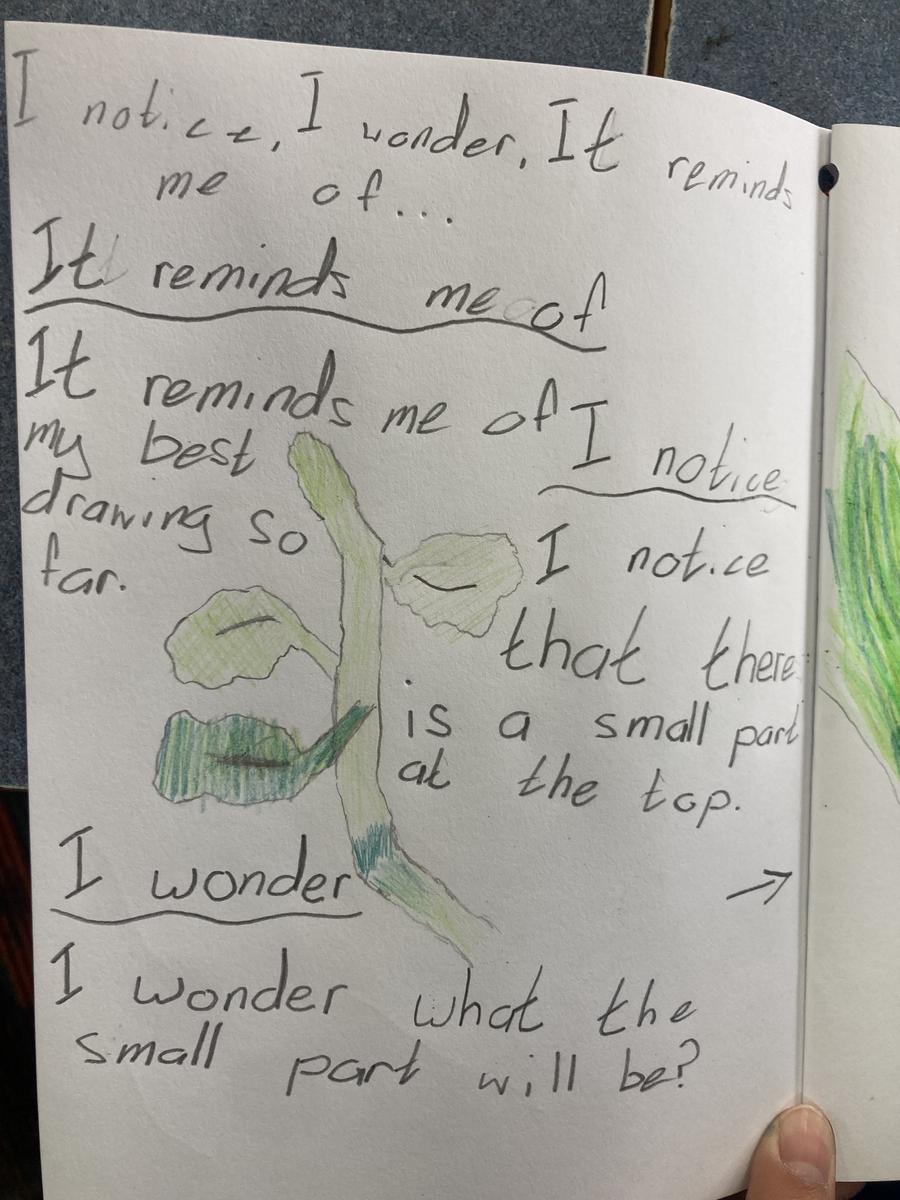 I notice, I wonder, It reminds
me of...
It reminds me of
It reminds me of
my best
drawing so
far.
I notice
I notice
that there
is a small part
at the top.
I wonder
I wonder what the
small part will be?